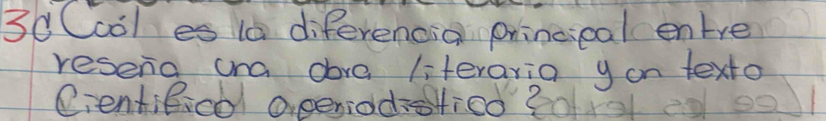 3 ¿Cuál es la diferencia principal entre
reseña una obra literaria y un texto
Cientifico o periodistico?